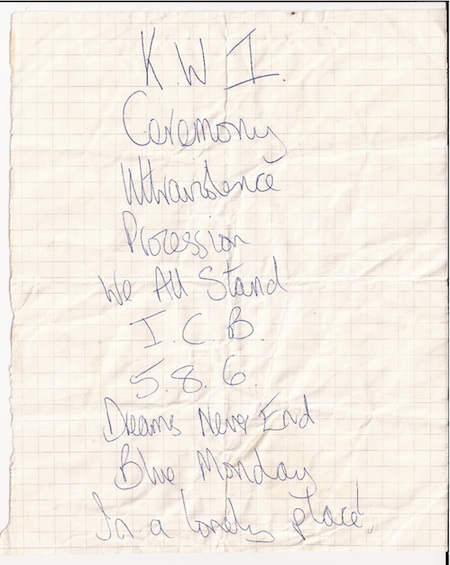 K.W I.
Ceremony
Ultraviolence
Procession
We All Stand
I.C.B.
5.8.6.
Dreams Never End
Blue Monday
In a lonely place.